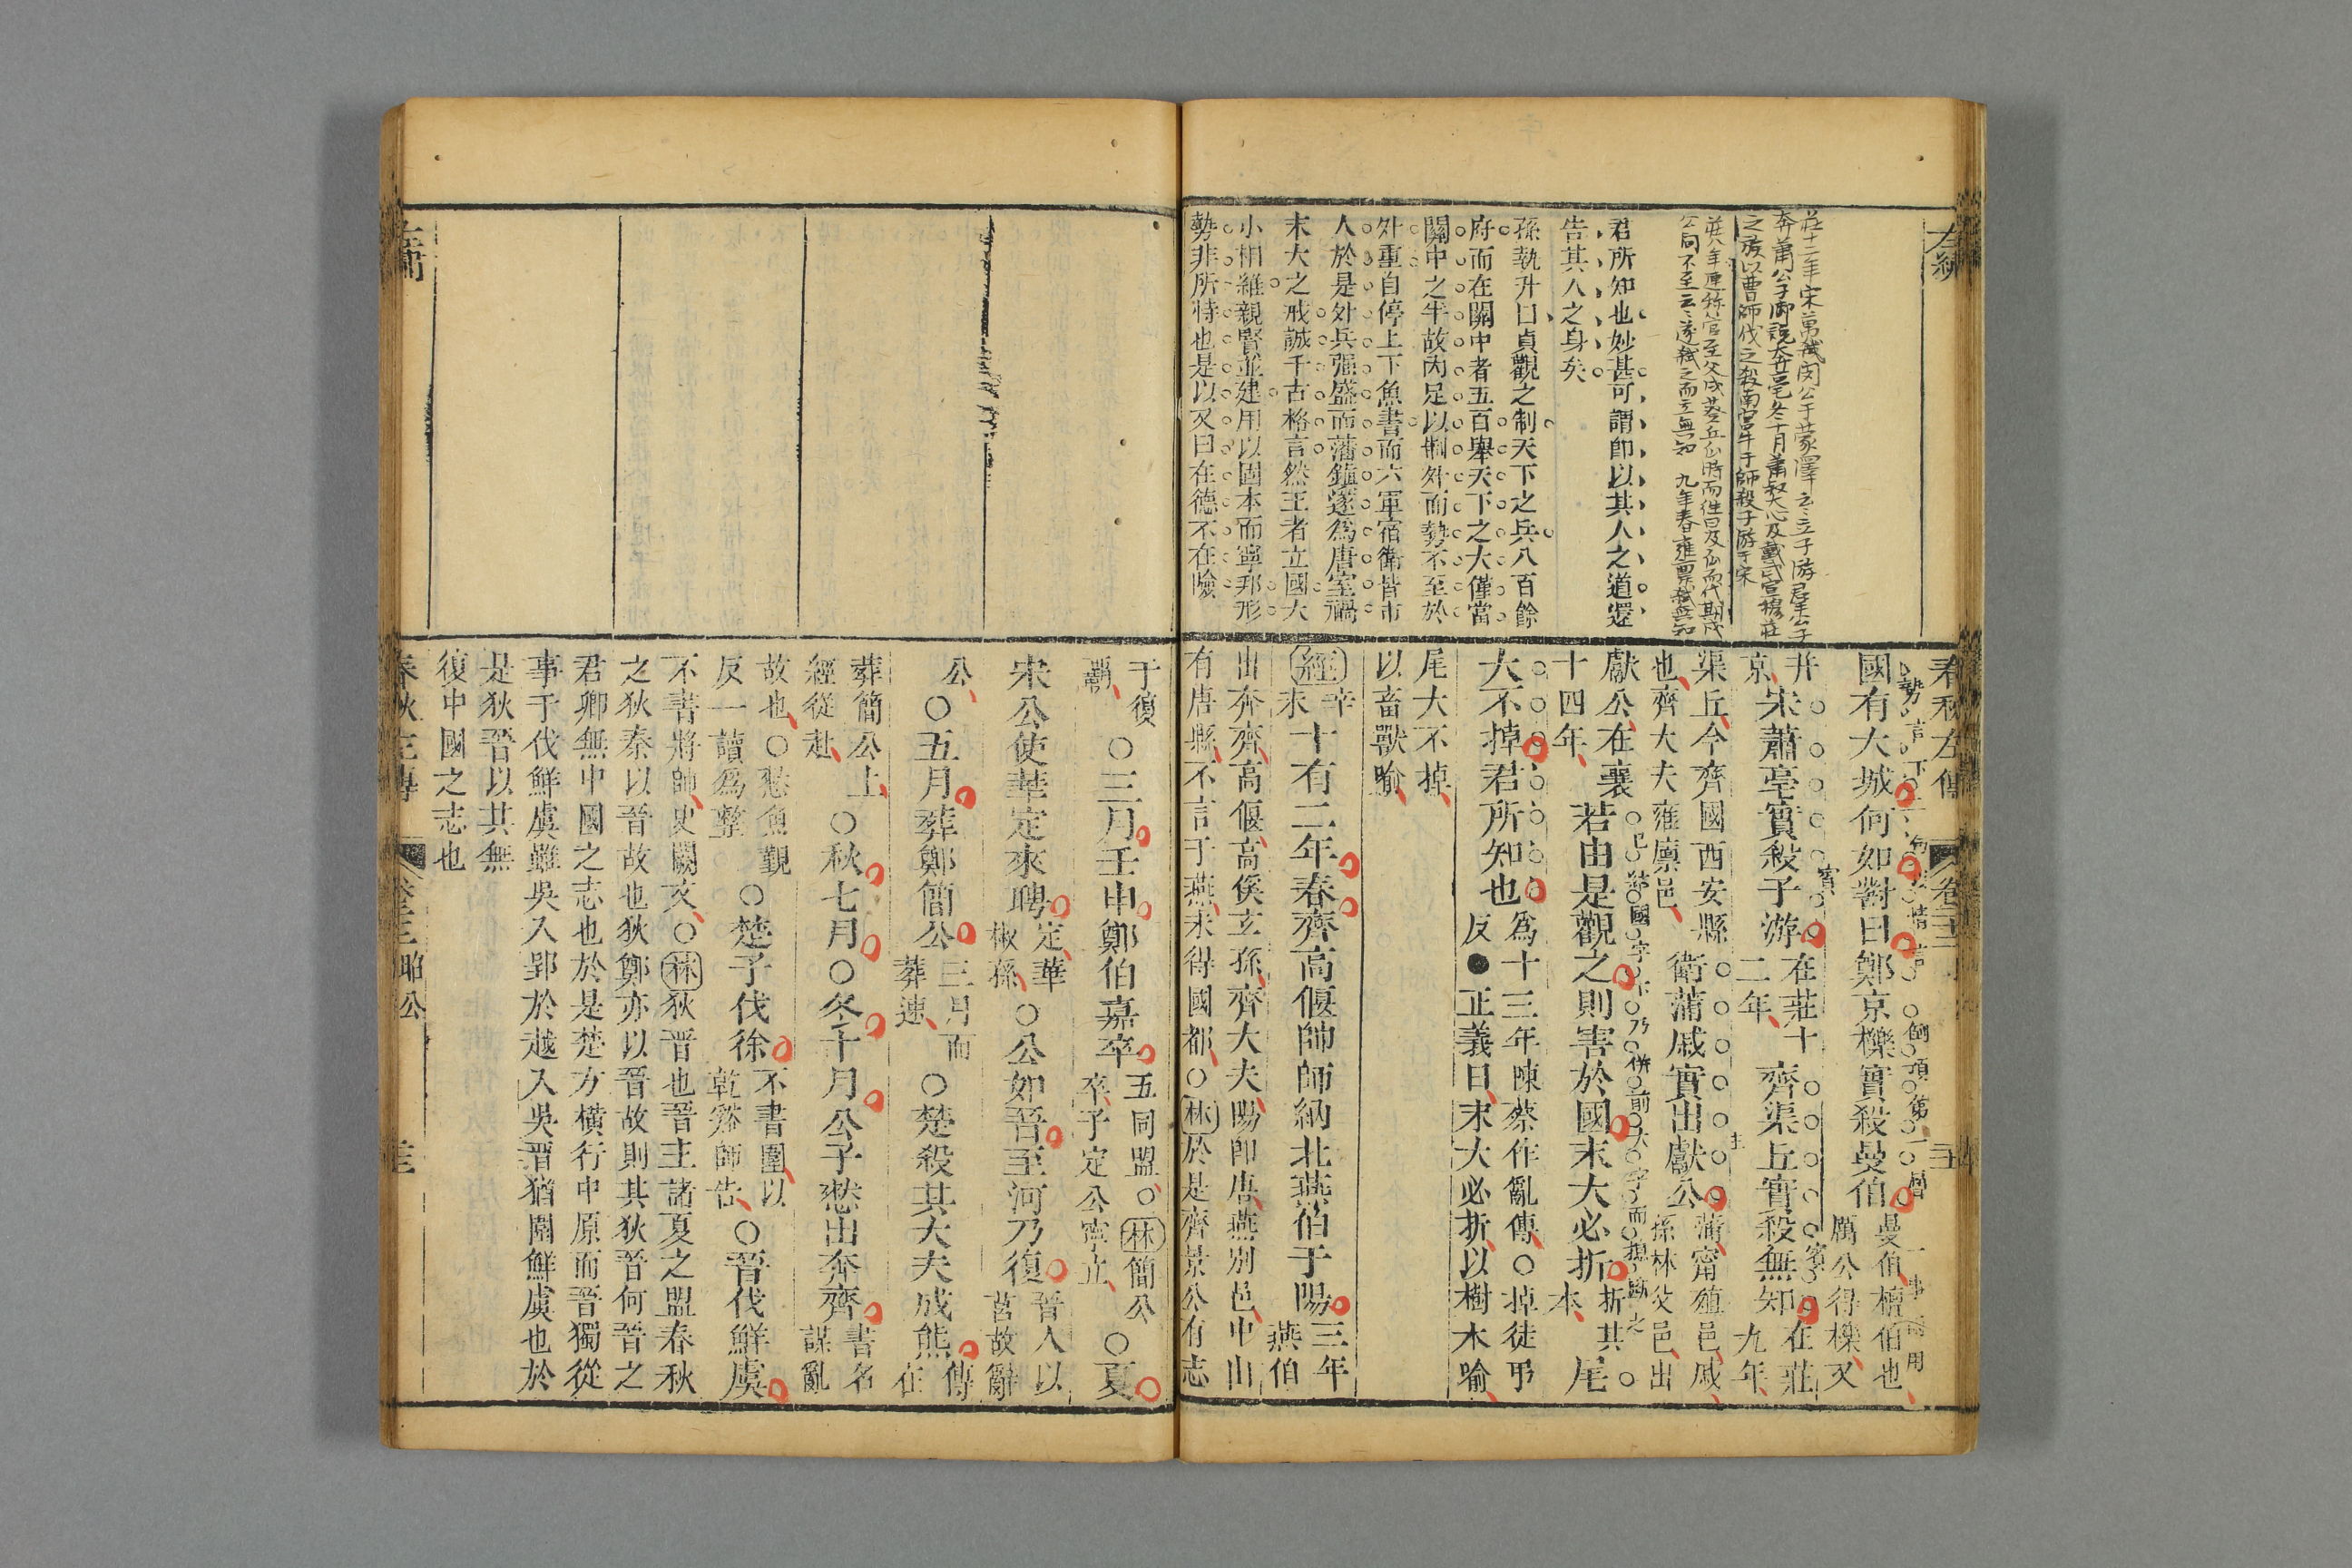 左繡
莊十二年宋萬弑閔公于蒙澤云云立子游羣公子
奔蕭公子御說奔亳冬十月蕭叔大心及戴武宣穆莊
之族以曹師伐之殺南宮牛于師殺子游于宋
公問不至云云遂弑之而立無知 九年春雍廩殺無知
君所知也妙甚可謂卽以其人之道還
告其人之身矣
孫執升曰貞觀之制天下之兵八百餘
府而在關中者五百舉天下之大僅當
關中之半故內足以制外而勢不至於
外重自停上下魚書而六軍宿衛皆市
人於是外兵彊盛而藩鎮遂爲唐室禍
末大之戒誠千古格言然王者立國大
小相維親賢並建用以固本而寧邦形
勢非所恃也是以又曰在德不在險
春秋左傳
國有大城何如對曰鄭京櫟實殺曼伯 曼伯檀伯也厲公得櫟又
并京 宋蕭亳實殺子游 在莊十二年 齊渠丘實殺無知 在莊九年
渠丘今齊國西安縣也齊大夫雍廩邑 衛蒲戚實出獻公 蒲甯殖邑戚孫林父邑出
獻公在襄十四年 若由是觀之則害於國末大必折 折其本 尾
大不掉君所知也 爲十三年陳蔡作亂傳○掉徒弔反●正義曰末大必折以樹木喻
尾大不掉以畜獸喻
經 辛未 十有二年春齊高偃帥師納北燕伯于陽 三年燕伯
出奔齊高偃高傒玄孫齊大夫陽卽唐燕別邑中山
有唐縣不言于燕未得國都○林於是齊景公有志
于復霸 ○三月壬申鄭伯嘉卒 五同盟○林簡公卒子定公寧立 ○夏
宋公使華定來聘 定華椒孫 ○公如晉至河乃復 晉人以莒故辭
公 ○五月葬鄭簡公 三月而葬速 ○楚殺其大夫成熊 傳在
葬簡公上經從赴 ○秋七月○冬十月公子憖出奔齊 書名謀亂
故也○憖魚覲反一讀爲整 ○楚子伐徐 不書圍以乾谿師告 ○晉伐鮮虞
不書將帥史闕文○林狄晉也晉主諸夏之盟春秋
之狄秦以晉故也狄鄭亦以晉故則其狄晉何晉之
君卿無中國之志也於是楚方橫行中原而晉獨從
事于伐鮮虞雖吳入郢於越入吳晉猶圍鮮虞也於
是狄晉以其無
復中國之志也
春秋左傳
昭公